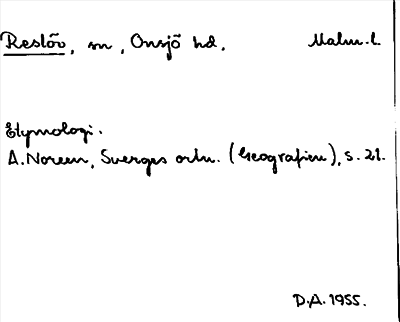 Restöv, sn, Onsjö hd. Malm.l.
Etymologi.
A. Noreen, Sverges ortn. (Geografien), s. 21.
D.A. 1955.